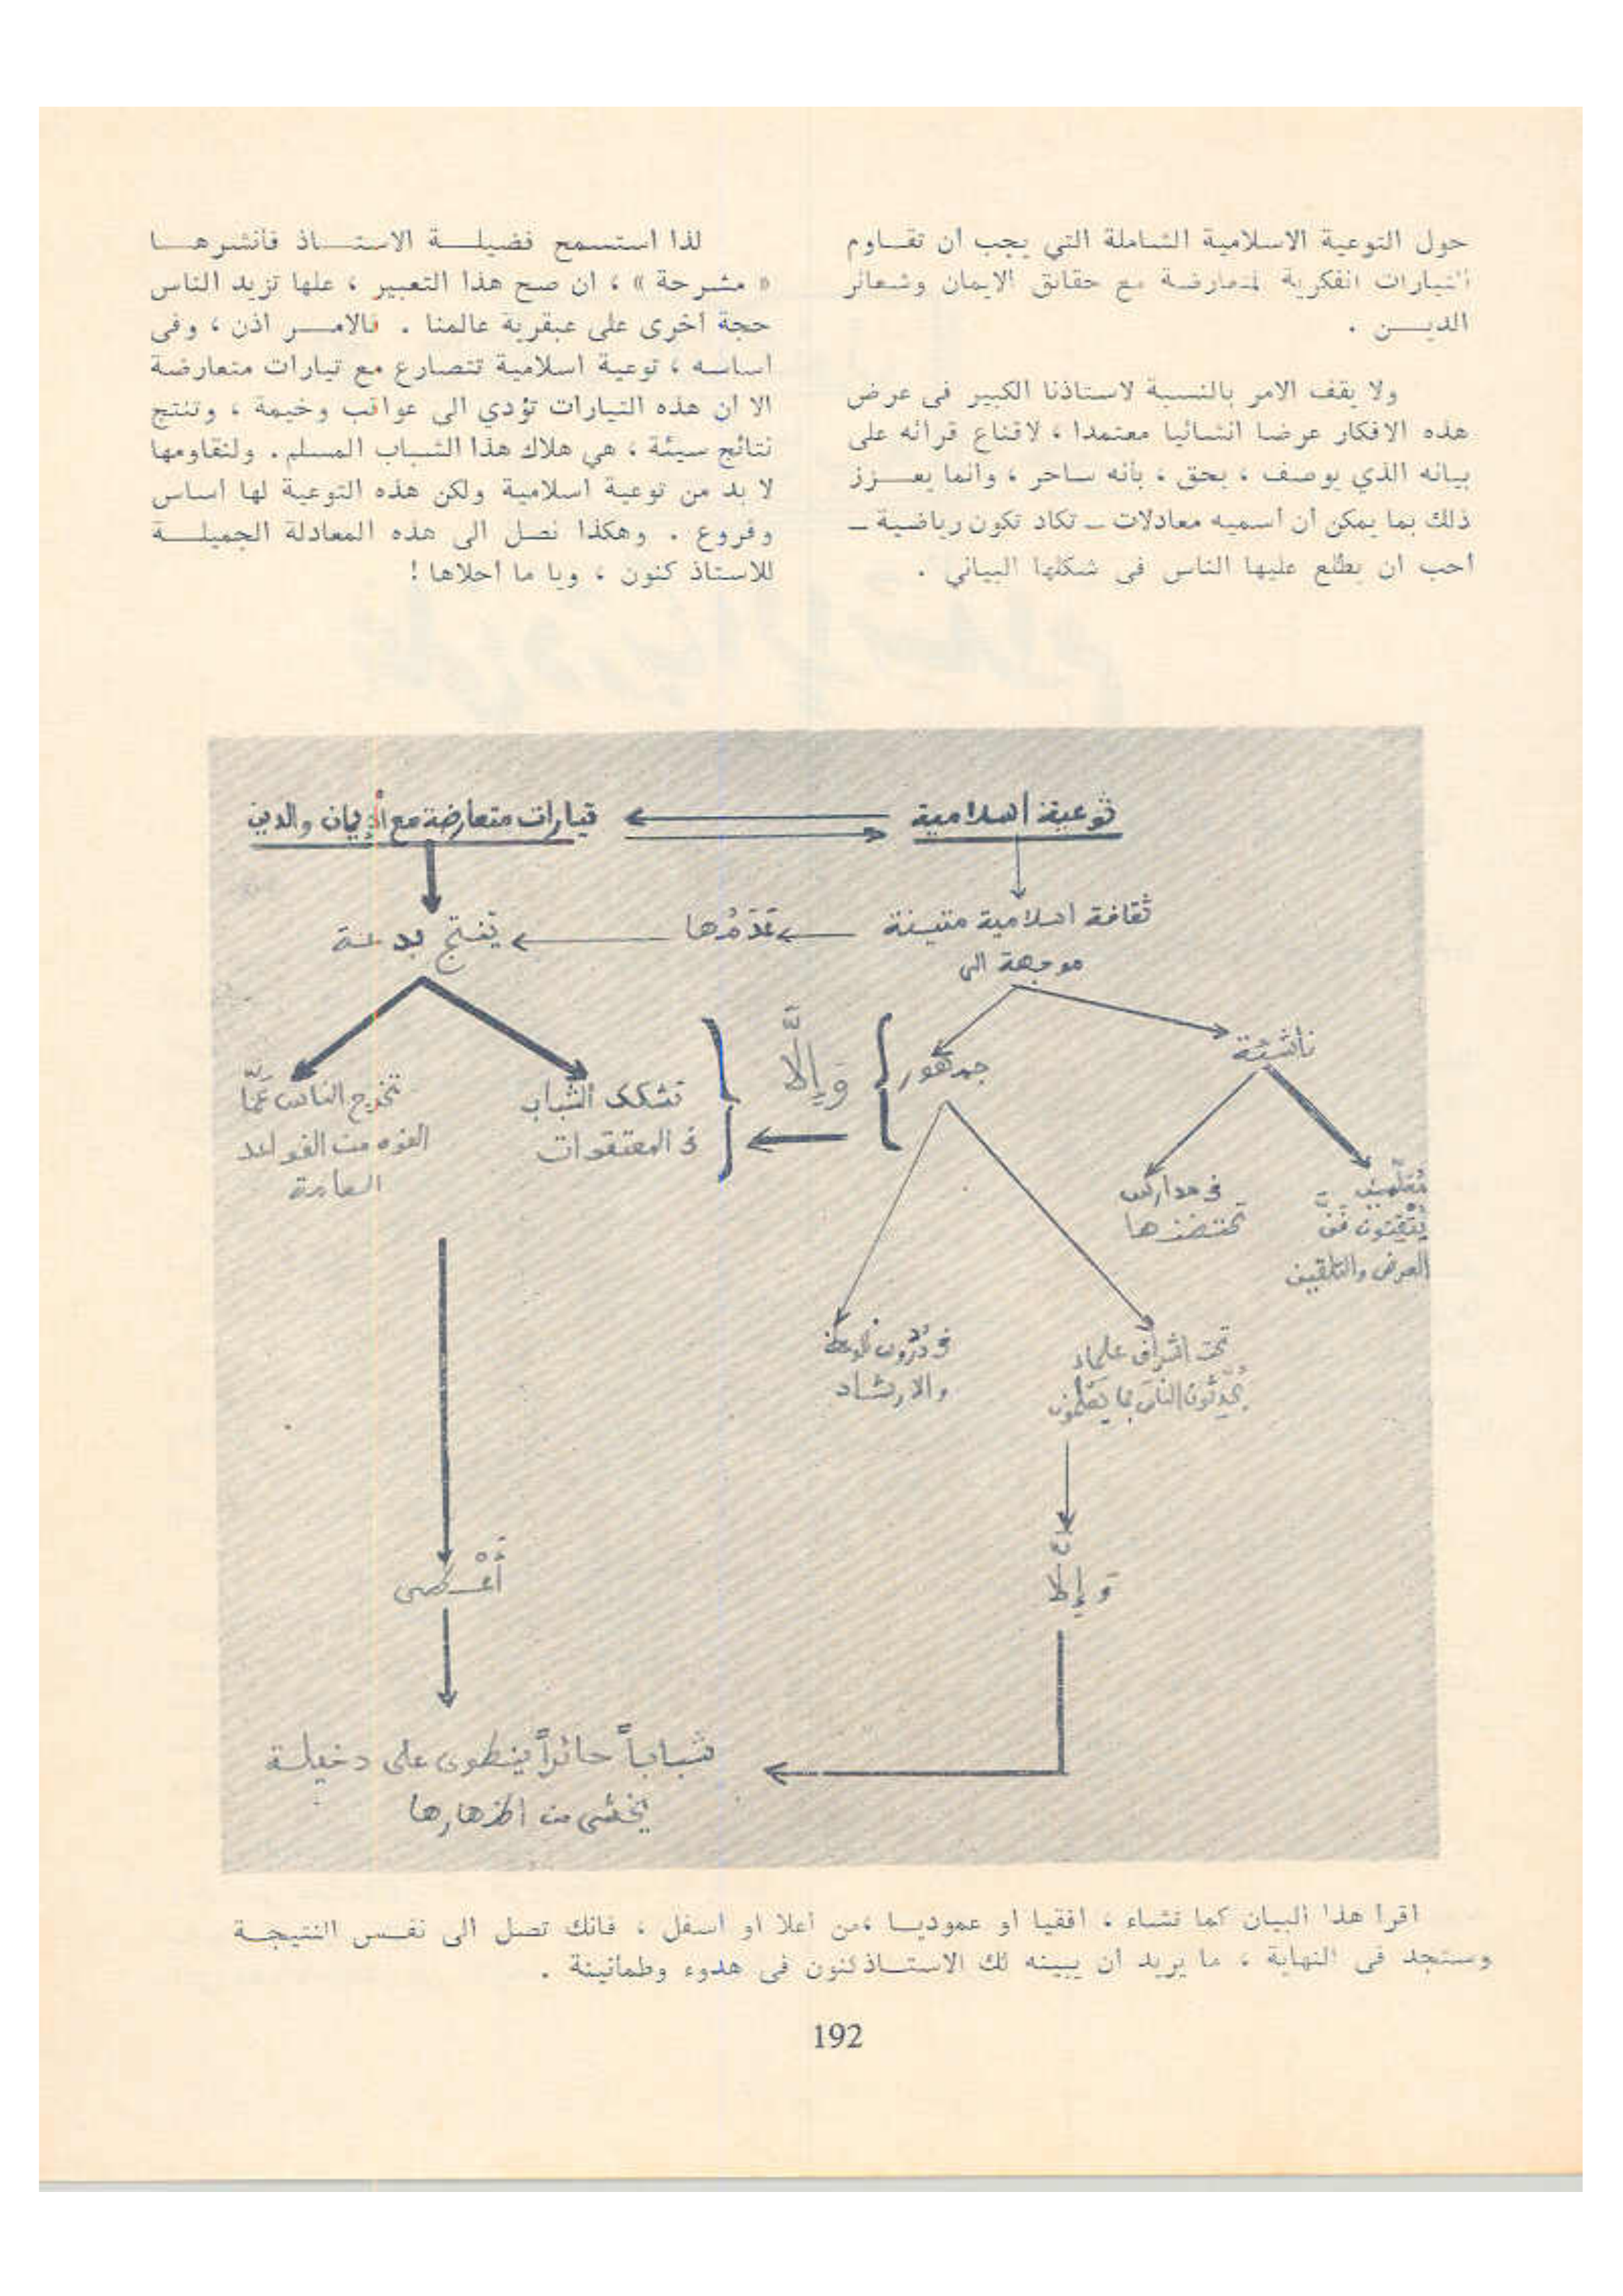 حول التوعية الاسلامية الشاملة التي يجب ان تقـاوم
التيارات الفكرية المتعارضة مع حقائق الايمان وشعائر
الديـــن .
ولا يقف الامر بالنسبة لاستاذنا الكبير فى عرض
هذه الافكار عرضا انشائيا معتمدا ، لاقناع قرائه على
بيانه الذي يوصف ، بحق ، بانه ساحر ، وانما يعـــزز
ذلك بما يمكن ان اسميه معادلات ــ تكاد تكون رياضية ــ
احب ان يطلع عليها الناس فى شكلها البياني .
لذا استسمح فضيلـــة الاستـــاذ فانشرهـــا
« مشرحة » ، ان صح هذا التعبير ، علها تزيد الناس
حجة اخرى على عبقرية عالمنا . فالامـــر اذن ، وفى
اساسه ، توعية اسلامية تتصارع مع تيارات متعارضة
الا ان هذه التيارات تؤدي الى عواقب وخيمة ، وتنتج
نتائج سيئة ، هي هلاك هذا الشباب المسلم . ولنقاومها
لا بد من توعية اسلامية ولكن هذه التوعية لها اساس
وفروع . وهكذا نصل الى هذه المعادلة الجميلـــة
للاستاذ كنون ، ويا ما احلاها !
توعية اسلامية
تيارات متعارضة مع الإيمان والدين
ثقافة اسلامية متينة
موجهة الى
ينتج بدعة
ناشئة
جمهور
وَإِلَّا
تشكك الشباب
فى المعتقدات
تخرج الناس عَمَّا
الفوه من القواعد
العامة
فى مدارس
تحتضنها
مُعَلِّمين
يُتقنون فنَّ
العرض والتلقين
فى دروس للوعظ
والارشاد
تحت اشراف علماء
يُحدِّثون الناس بما يَعْلمون
وَإِلَّا
شباباً حائراً ينطوى على دخيلة
يخشى من اظهارها
اقرا هذا البيان كما تشاء ، افقيا او عموديـا ،من اعلا او اسفل ، فانك تصل الى نفـس النتيجـة
وستجد فى النهاية ، ما يريد ان يبينه لك الاستـاذ كنون فى هدوء وطمانينة .
192